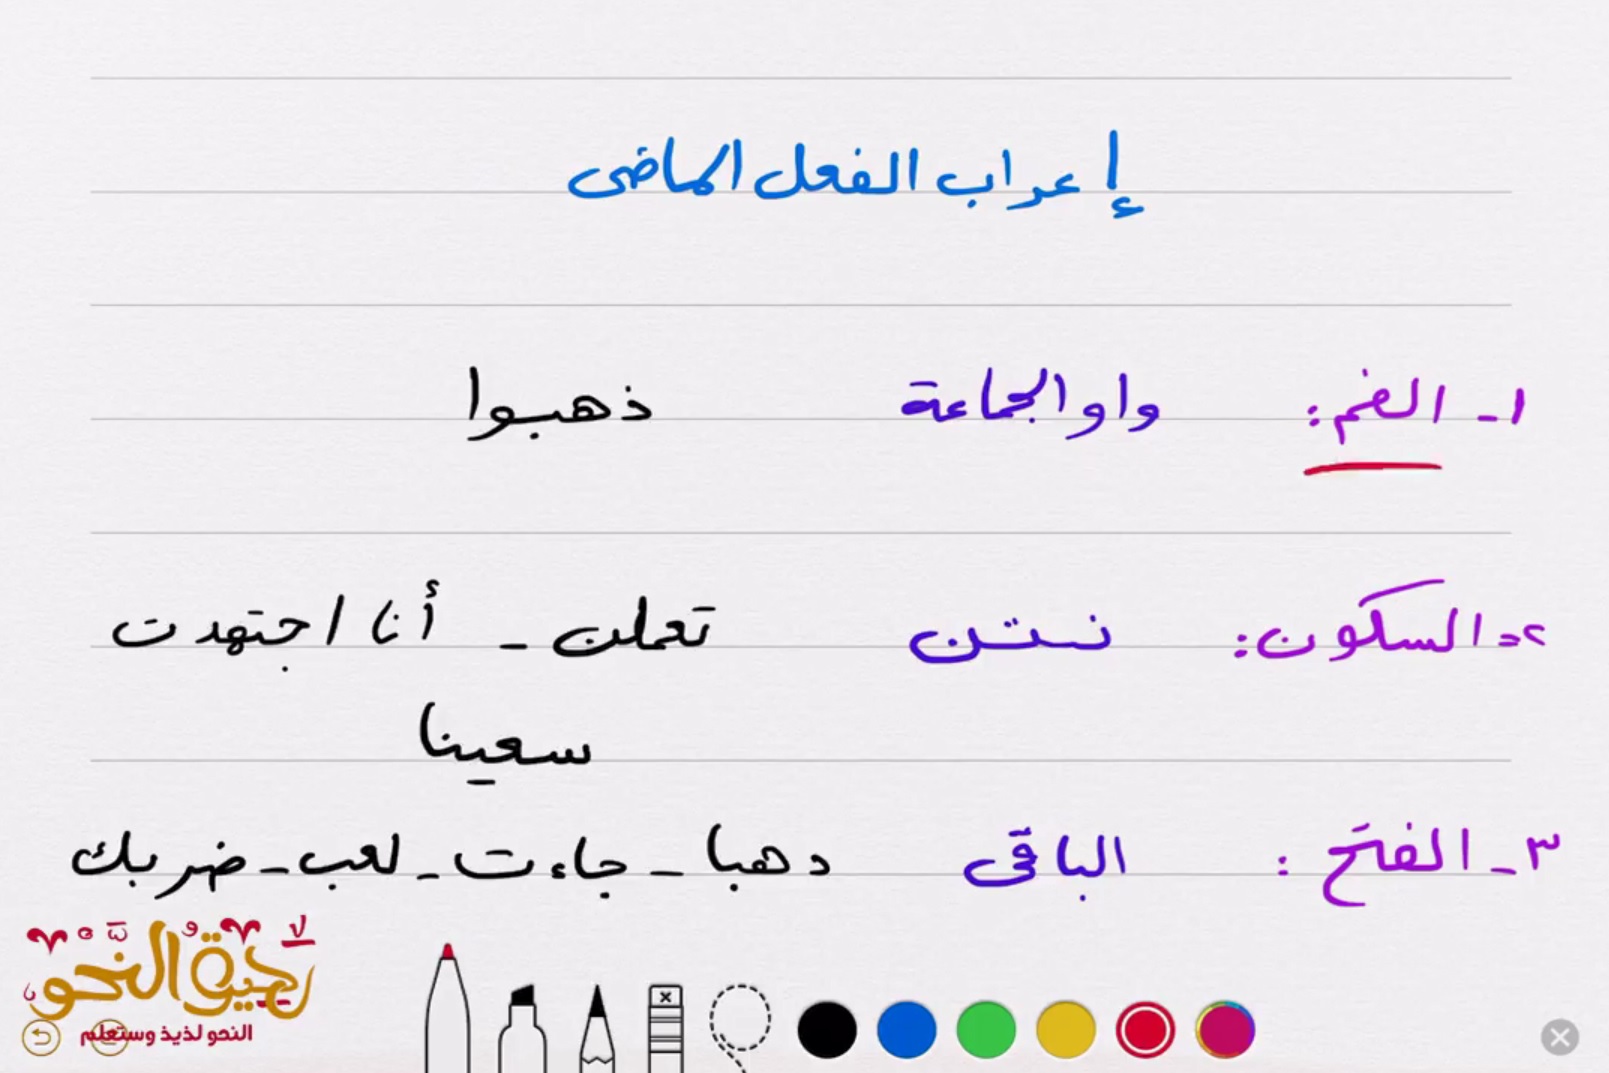 إعراب الفعل الماضى
١- الضم: واو الجماعة ذهبوا
٢- السكون: نـتـن تعملن - أنا اجتهدت
سعينا
٣- الفتح: الباقى دهبا - جاءت - لعب - ضربك
رحيق النحو
النحو لذيذ وستعلم